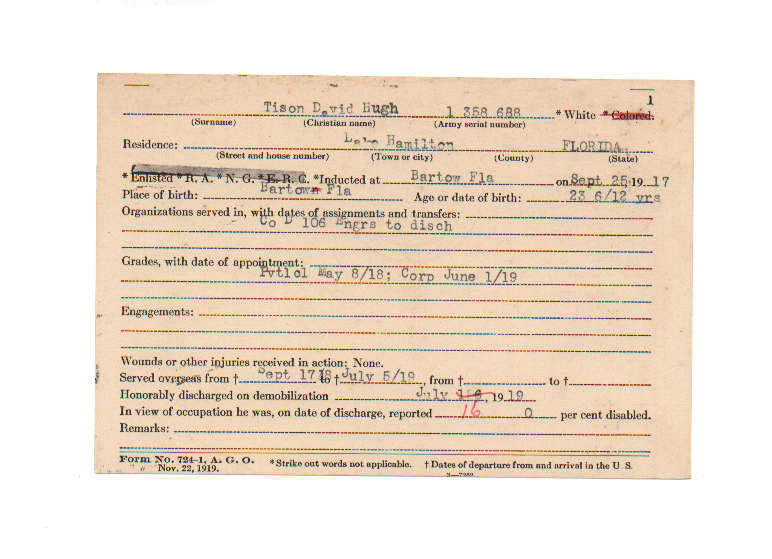 1
Tison David Hugh 1 358 688 * White * Colored.
(Surname) (Christian name) (Army serial number)
Residence: Lake Hamilton FLORIDA
(Street and house number) (Town or city) (County) (State)
* Enlisted * R. A. * N. G. * E. R. C. *Inducted at Bartow Fla on Sept 25 19 17
Place of birth: Bartown Fla Age or date of birth: 23 6/12 yrs
Organizations served in, with dates of assignments and transfers:
Co D 106 Engrs to disch
Grades, with date of appointment:
Pvtlcl May 8/18; Corp June 1/19
Engagements:
Wounds or other injuries received in action: None.
Served overseas from † Sept 17 18 to † July 5/19, from † to †
Honorably discharged on demobilization July 16, 19 19
In view of occupation he was, on date of discharge, reported 0 per cent disabled.
Remarks:
Form No. 724-1, A. G. O. *Strike out words not applicable. † Dates of departure from and arrival in the U S.
Nov. 22, 1919.